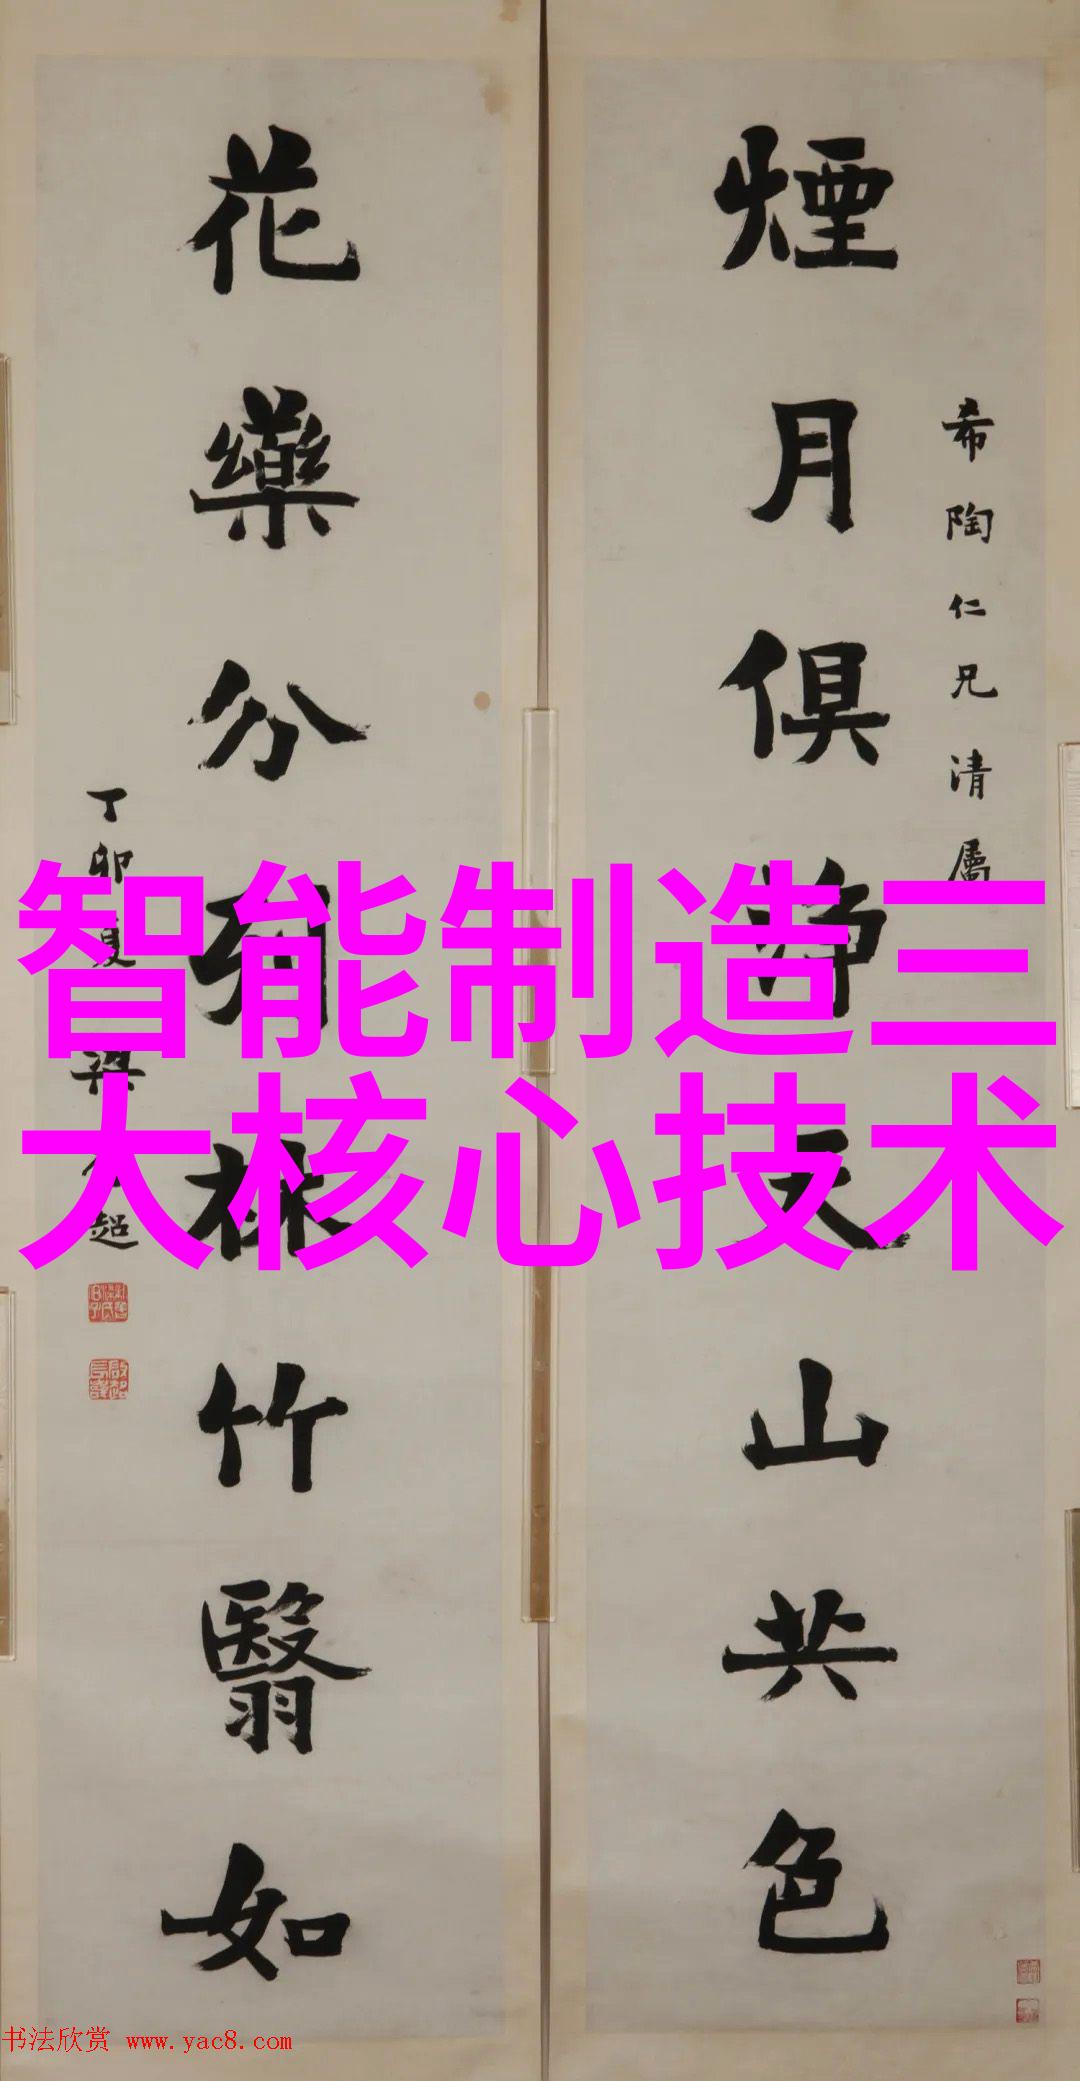 智能制造三
大核心技术
希陶仁兄清屬
煙月俱天山共色
花藥分列林竹翳如
丁卯夏梁超
书法欣赏 www.yac8.com